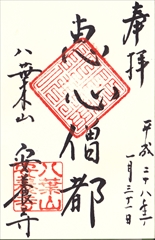 奉拝
平成二十八年
一月三十一日
恵心僧都
八葉山
安養寺
八葉山